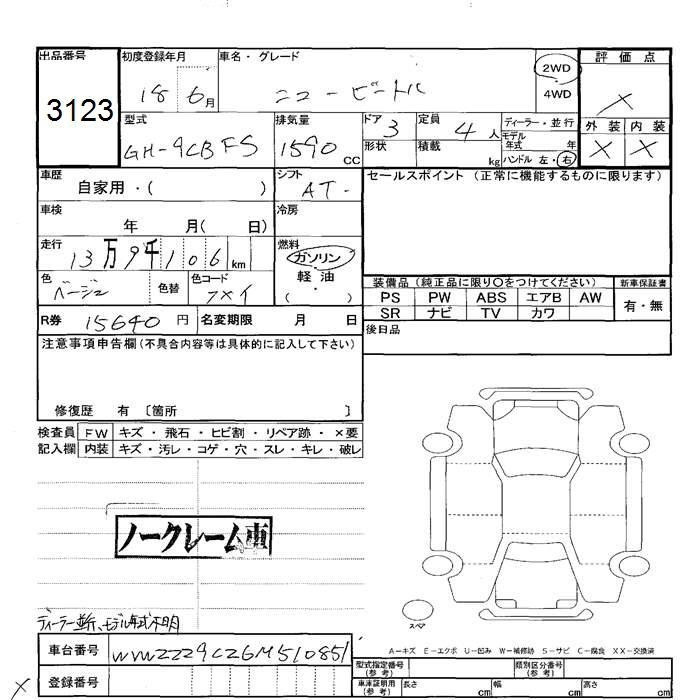 出品番号
3123
初度登録年月
18 6月
車名・グレード
ニュービートル
2WD
4WD
評価点
×
外装 内装
× ×
型式
GH-9CBFS
排気量
1590 CC
ドア 3
形状
定員 4人
積載 kg
ディーラー・並行
モデル年式 年
ハンドル 左・右
車歴
自家用・( )
シフト
AT-
セールスポイント (正常に機能するものに限ります)
車検
年 月( 日)
冷房
走行
13万9千106km
燃料
ガソリン
軽油
・
( )
色
ベージュ
色替
色コード
装備品 (純正品に限り○をつけてください)
新車保証書
PS PW ABS エアB AW
SR ナビ TV カワ
有・無
R券 15640円
名変期限 月 日
後日品
注意事項申告欄(不具合内容等は具体的に記入して下さい)
修復歴 有 〔箇所 〕
検査員
記入欄
FW キズ・飛石・ヒビ割・リペア跡・×要
内装 キズ・汚レ・コゲ・穴・スレ・キレ・破レ
ノークレーム車
スペア
ディーラー並行、モデル年式不明
A-キズ E-エクボ U-凹み W-補修跡 S-サビ C-腐食 XX-交換済
車台番号 WVWZZZ9CZ6M510851
型式指定番号
(参考)
類別区分番号
(参考)
× 登録番号
車庫証明用
(参考)
長さ cm 幅 cm 高さ cm